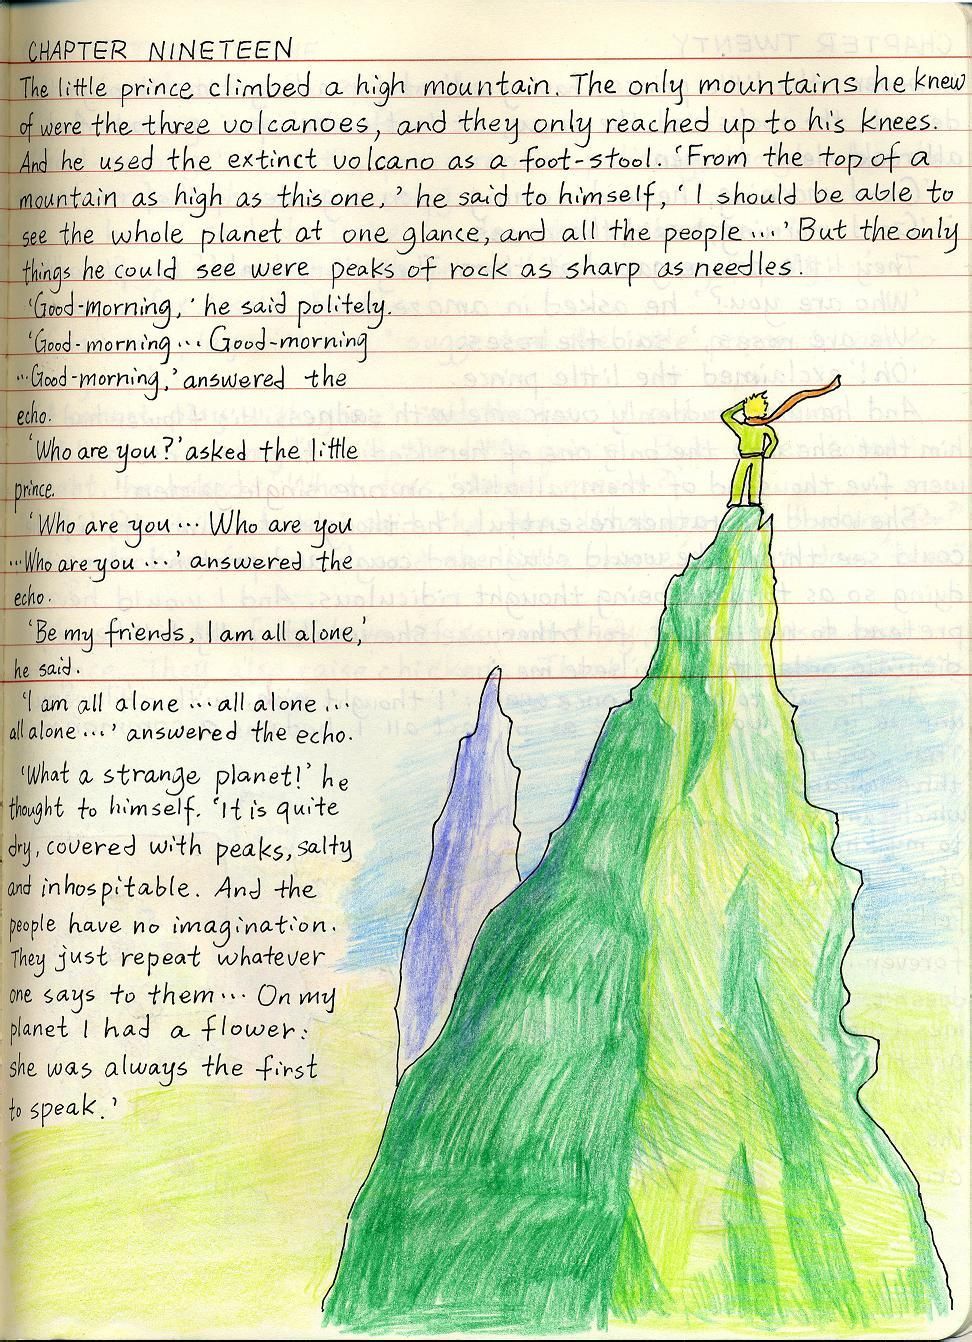 CHAPTER NINETEEN
The little prince climbed a high mountain. The only mountains he knew
of were the three volcanoes, and they only reached up to his knees.
And he used the extinct volcano as a foot-stool. 'From the top of a
mountain as high as this one,' he said to himself, 'I should be able to
see the whole planet at one glance, and all the people ...' But the only
things he could see were peaks of rock as sharp as needles.
'Good-morning,' he said politely.
'Good-morning ... Good-morning
... Good-morning,' answered the
echo.
'Who are you?' asked the little
prince.
'Who are you ... Who are you
... Who are you ...' answered the
echo.
'Be my friends, I am all alone,'
he said.
'I am all alone ... all alone ...
all alone ...' answered the echo.
'What a strange planet!' he
thought to himself. 'It is quite
dry, covered with peaks, salty
and inhospitable. And the
people have no imagination.
They just repeat whatever
one says to them ... On my
planet I had a flower:
she was always the first
to speak.'